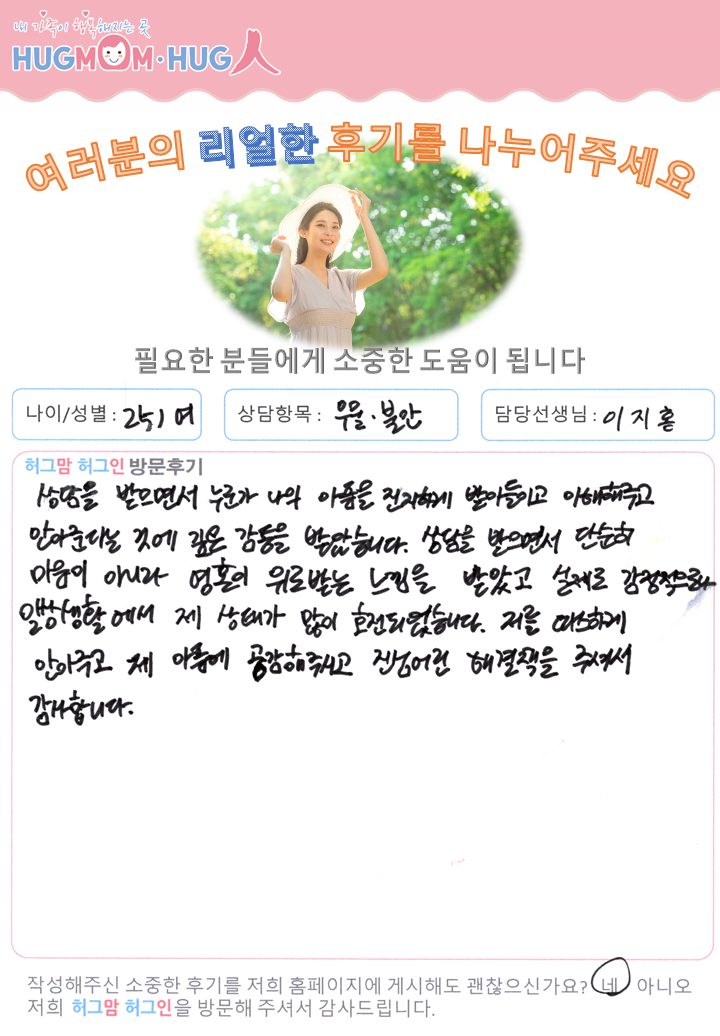 내 가족이 행복해지는 곳
HUGMOM·HUG人
여러분의 리얼한 후기를 나누어주세요
필요한 분들에게 소중한 도움이 됩니다
나이/성별 : 25 / 여
상담항목 : 우울 · 불안
담당선생님 : 이지혼
허그맘 허그인 방문후기
상담을 받으면서 누군가 나의 아픔을 진지하게 받아들이고 이해해주고
안아준다는 것에 깊은 감동을 받았습니다. 상담을 받으면서 단순히
마음이 아니라 영혼이 위로받는 느낌을 받았고 실제로 감정적으로나
일상생활에서 제 상태가 많이 호전되었습니다. 저를 따스하게
안아주고 제 아픔에 공감해주시고 진심어린 해결책을 주셔서
감사합니다.
작성해주신 소중한 후기를 저희 홈페이지에 게시해도 괜찮으신가요? 네 아니오
저희 허그맘 허그인을 방문해 주셔서 감사드립니다.